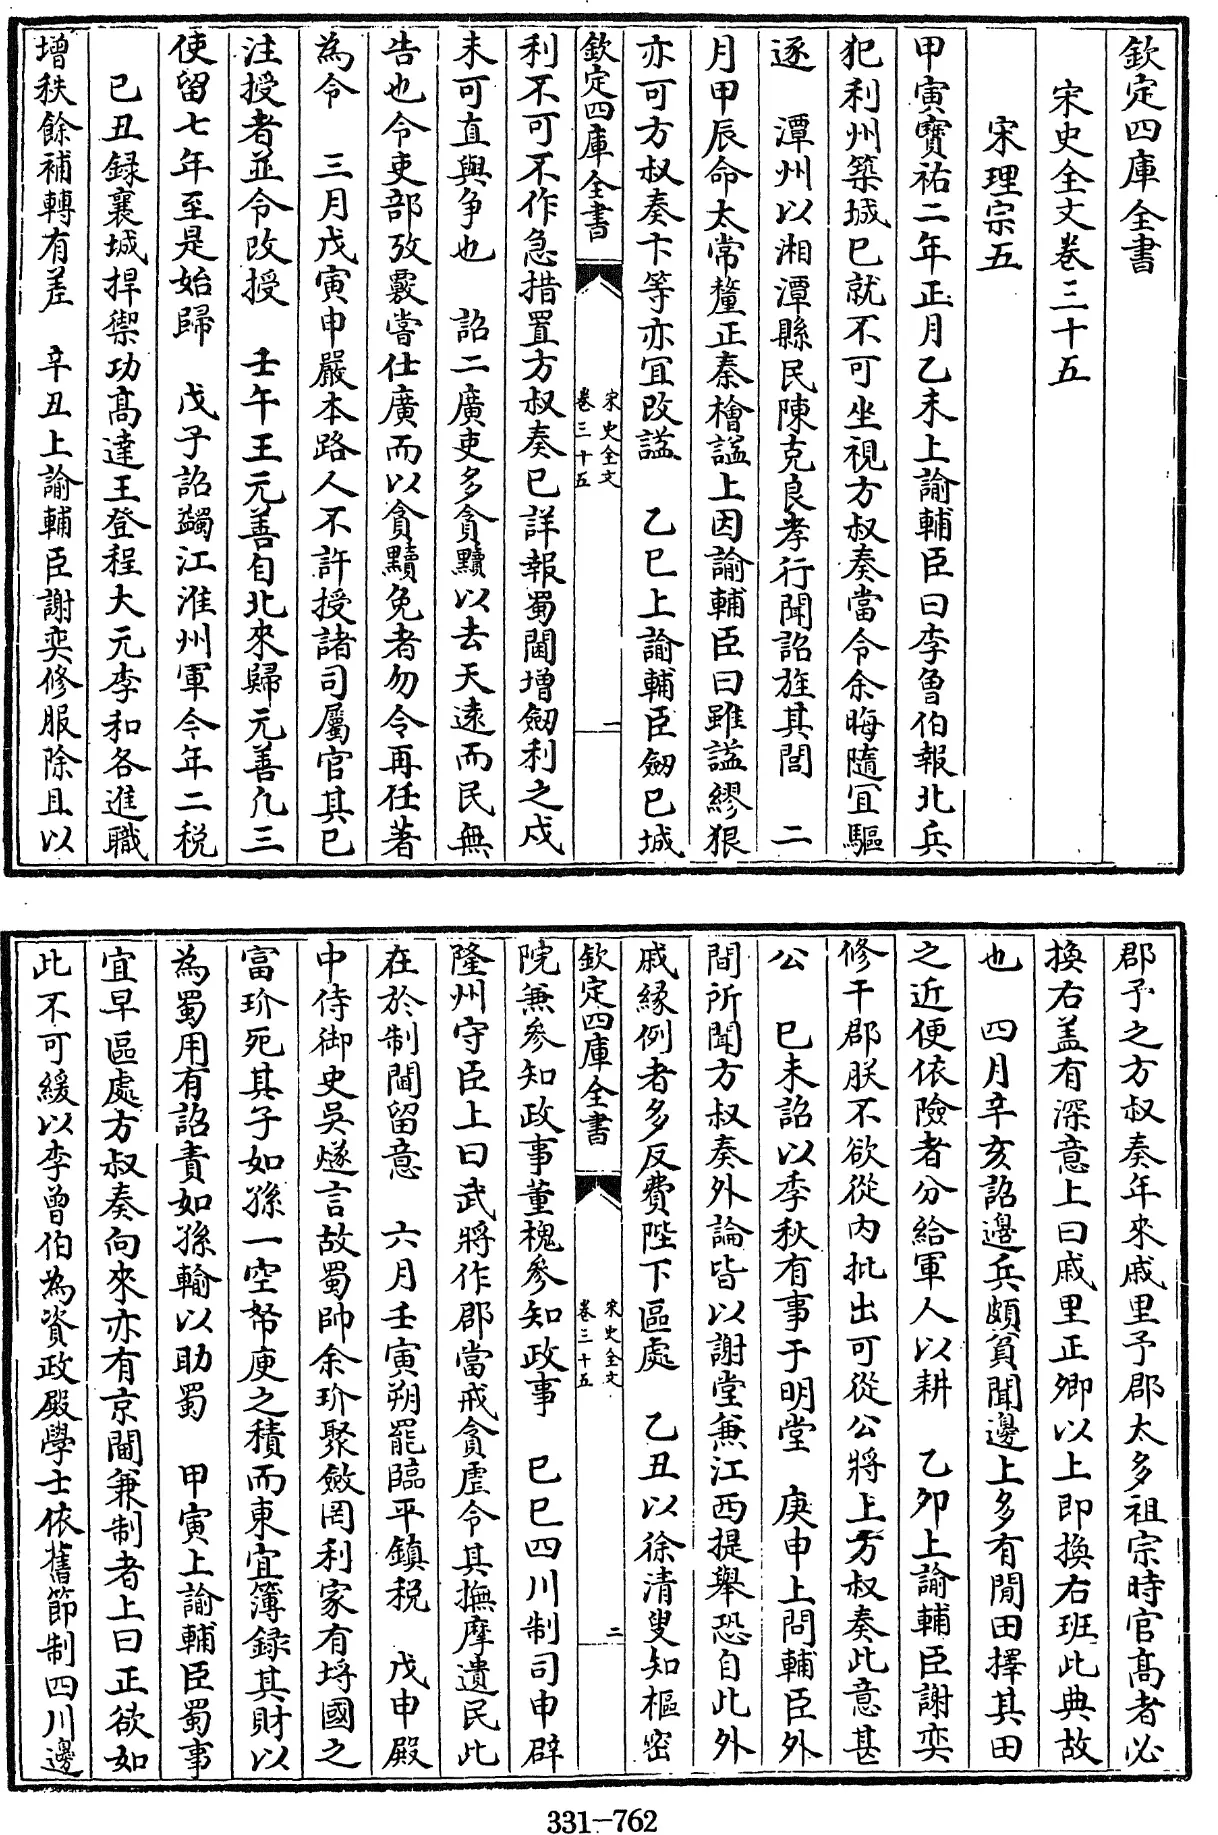 欽定四庫全書
宋史全文卷三十五
宋理宗五
甲寅寳祐二年正月乙未上諭輔臣曰李曾伯報北兵
犯利州築城已就不可坐視方叔奏當令余晦隨宜驅
逐　潭州以湘潭縣民陳克良孝行聞詔旌其閭　二
月甲辰命太常釐正秦檜諡上因諭輔臣曰雖諡繆狠
亦可方叔奏卞等亦宜改諡　乙巳上諭輔臣劒已城
欽定四庫全書
宋史全文
卷三十五
一
利不可不作急措置方叔奏已詳報蜀閫增劒利之戍
未可直與争也　詔二廣吏多貪黷以去天遠而民無
告也令吏部攷覈嘗仕廣而以貪黷免者勿令再任著
為令　三月戊寅申嚴本路人不許授諸司屬官其已
注授者並令改授　壬午王元善自北來歸元善凡三
使留七年至是始歸　戊子詔蠲江淮州軍今年二税
已丑録襄城捍禦功髙達王登程大元李和各進職
增秩餘補轉有差　辛丑上諭輔臣謝奕修服除且以
郡予之方叔奏年來戚里予郡太多祖宗時官髙者必
換右盖有深意上曰戚里正卿以上即換右班此典故
也　四月辛亥詔邊兵頗貧聞邊上多有閒田擇其田
之近便依險者分給軍人以耕　乙卯上諭輔臣謝奕
修干郡朕不欲從内批出可從公將上方叔奏此意甚
公　已未詔以季秋有事于明堂　庚申上問輔臣外
間所聞方叔奏外論皆以謝堂兼江西提舉恐自此外
戚縁例者多反費陛下區處　乙丑以徐清叟知樞密
欽定四庫全書
宋史全文
卷三十五
二
院兼參知政事董槐參知政事　已巳四川制司申辟
隆州守臣上曰武將作郡當戒貪虐令其撫摩遺民此
在於制閫留意　六月壬寅朔罷臨平鎮税　戊申殿
中侍御史吳燧言故蜀帥余玠聚斂罔利家有埓國之
富玠死其子如孫一空帑庾之積而東宜簿録其財以
為蜀用有詔責如孫輸以助蜀　甲寅上諭輔臣蜀事
宜早區處方叔奏向來亦有京閫兼制者上曰正欲如
此不可緩以李曾伯為資政殿學士依舊節制四川邊
331-762